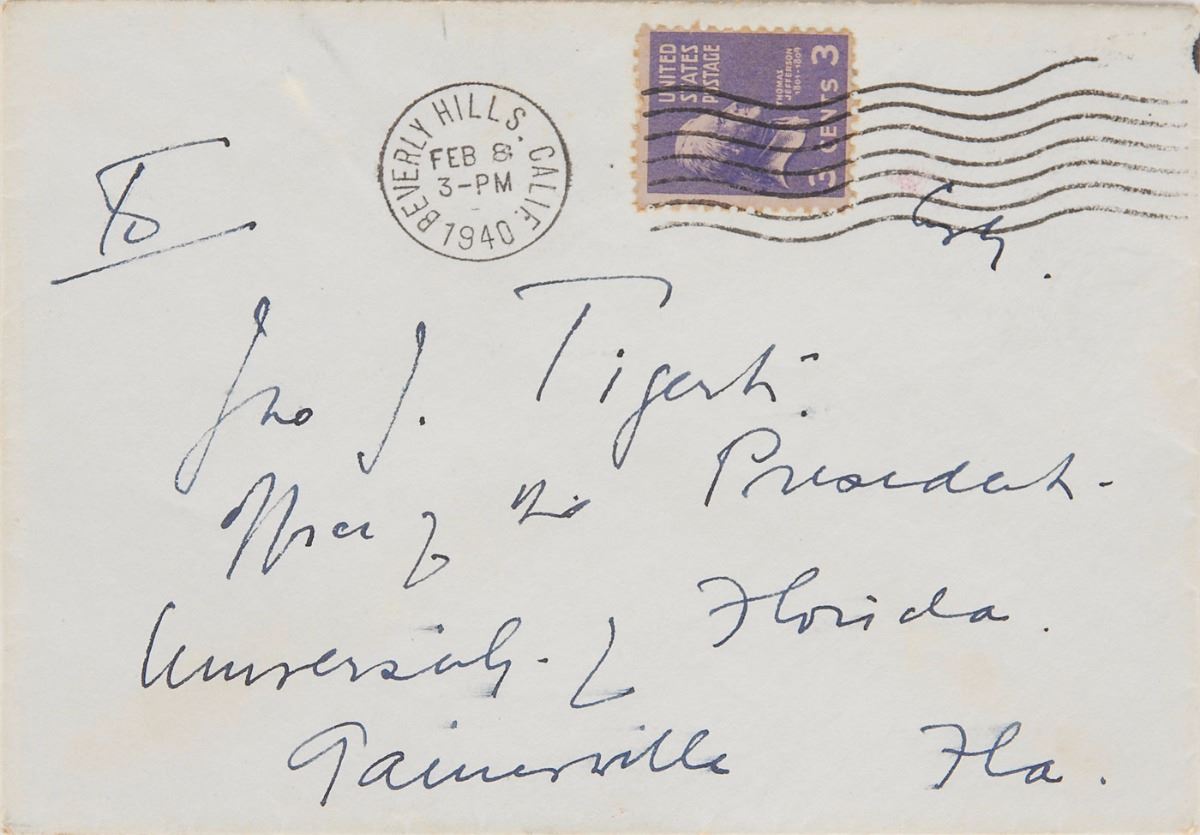 BEVERLY HILLS. CALIF.
FEB 8
3-PM
1940
UNITED
STATES
POSTAGE
THOMAS
JEFFERSON
1801-1809
3 CENTS 3
To
Jno J. Tigert.
Office of the President.
University of Florida.
Gainesville Fla.